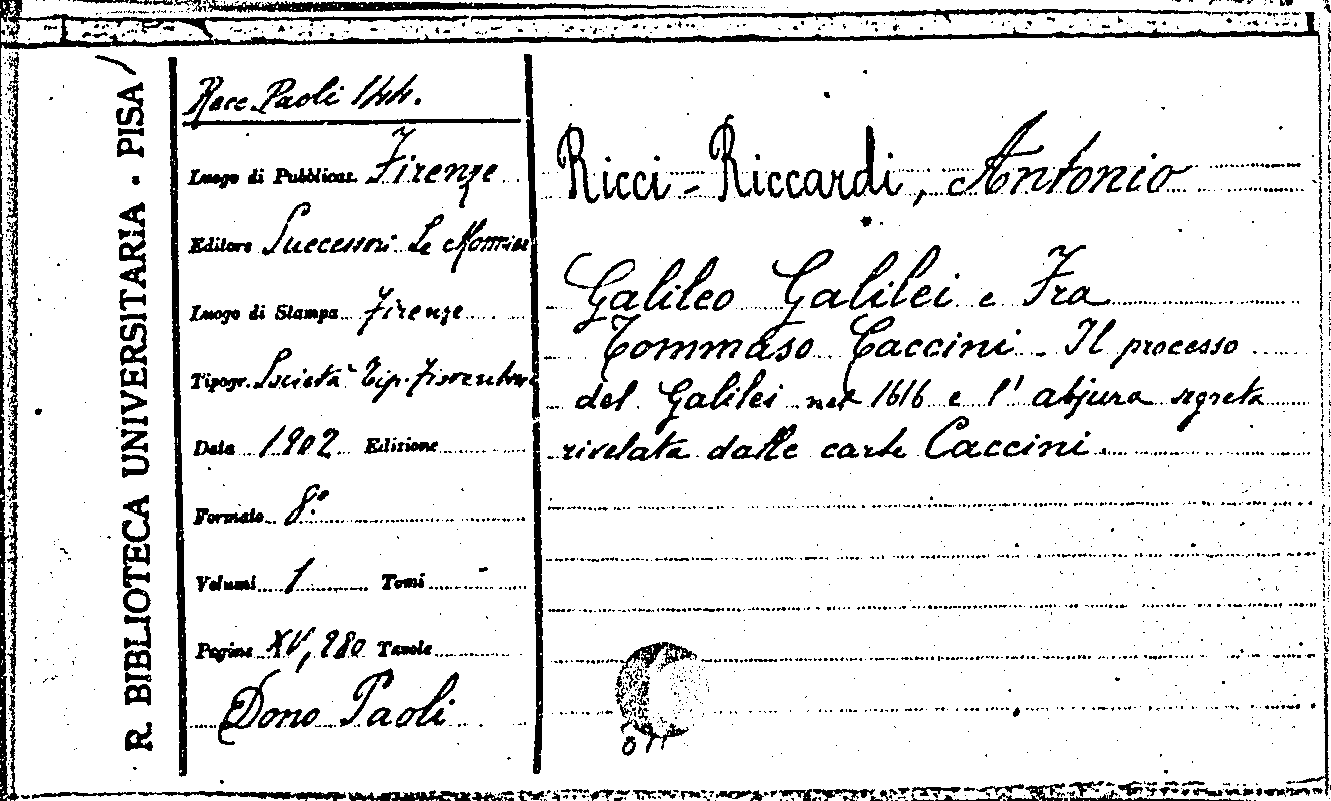 R. BIBLIOTECA UNIVERSITARIA - PISA
Racc. Paoli 144.
Luogo di Pubblicaz. Firenze
Editore Successori Le Monnier
Luogo di Stampa Firenze
Tipogr. Società Tip. Fiorentina
Data 1902 Edizione
Formato 8°
Volumi 1 Tomi -
Pagine XV, 280 Tavole
Dono Paoli
Ricci-Riccardi, Antonio
Galileo Galilei e Fra
Tommaso Caccini. Il processo
del Galilei nel 1616 e l'abjura segreta
rivelata dalle carte Caccini.